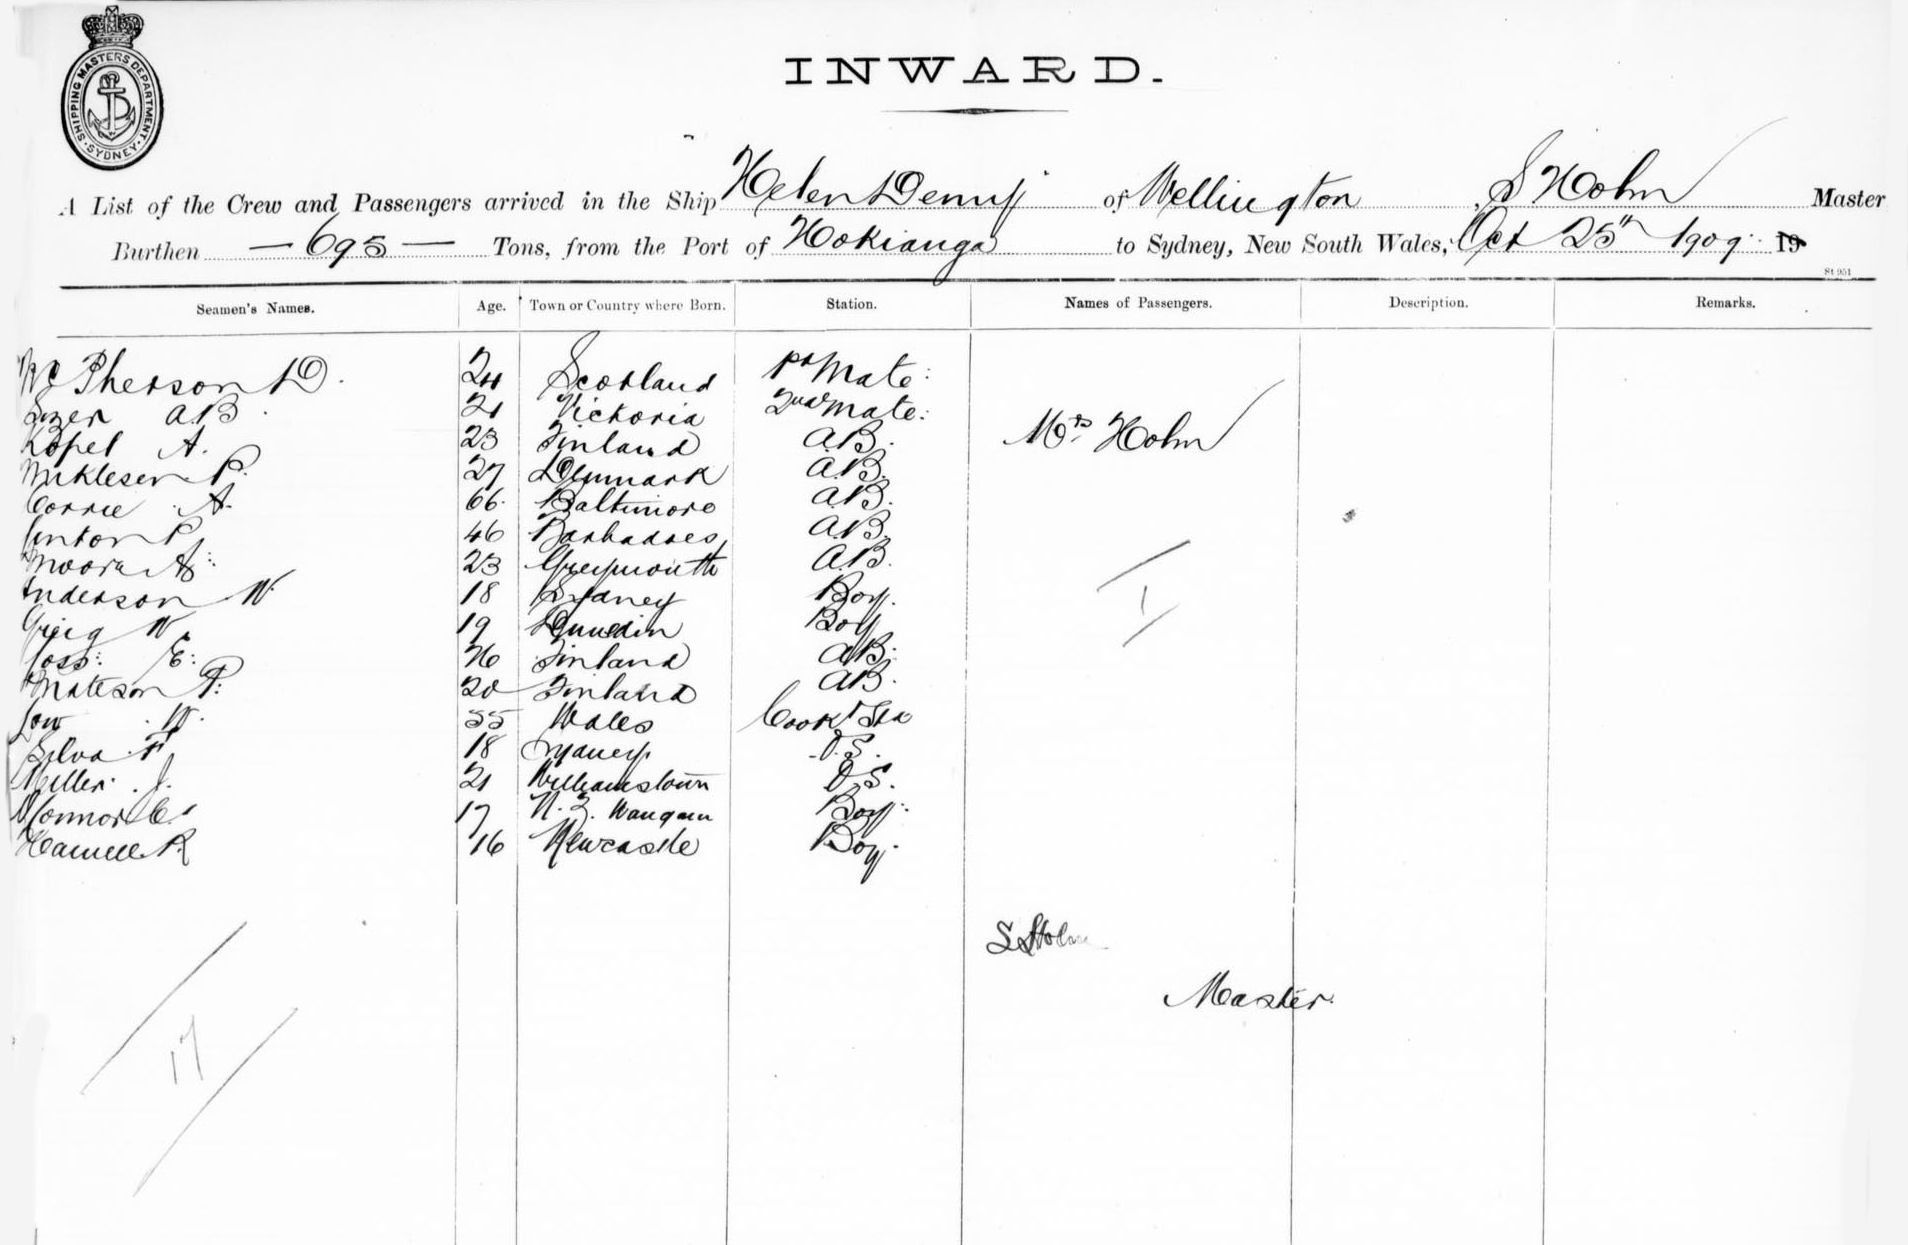 SHIPPING MASTERS DEPARTMENT · SYDNEY ·
INWARD.
A List of the Crew and Passengers arrived in the Ship Helen Denny of Wellington, S Holm Master
Burthen — 695 — Tons, from the Port of Hokianga to Sydney, New South Wales, Oct 25th 1909 19
St 951
Seamen's Names. Age. Town or Country where Born. Station. Names of Passengers. Description. Remarks.
McPherson D. 24 Scotland 1st Mate
AB. 21 Victoria 2nd Mate
Kopel A. 23 Finland A.B. Mrs Holm
Mikleson P. 27 Denmark A.B.
Corrie A. 66 Baltimore A.B.
P. 46 Barbadoes A.B.
Moore A. 23 Greymouth A.B.
Anderson W. 18 Sydney Boy.
Grieg W 19 Dunedin Boy
E. 26 Finland AB.
Mateson P. 20 Finland AB.
Low W. 55 Wales Cook & Std
Silva F 18 Sydney O.S.
Miller J. 21 Williamstown O.S.
OConnor C. 17 N.Z. Boy.
R. 16 Newcastle Boy.
1
S Holm
Master.
17